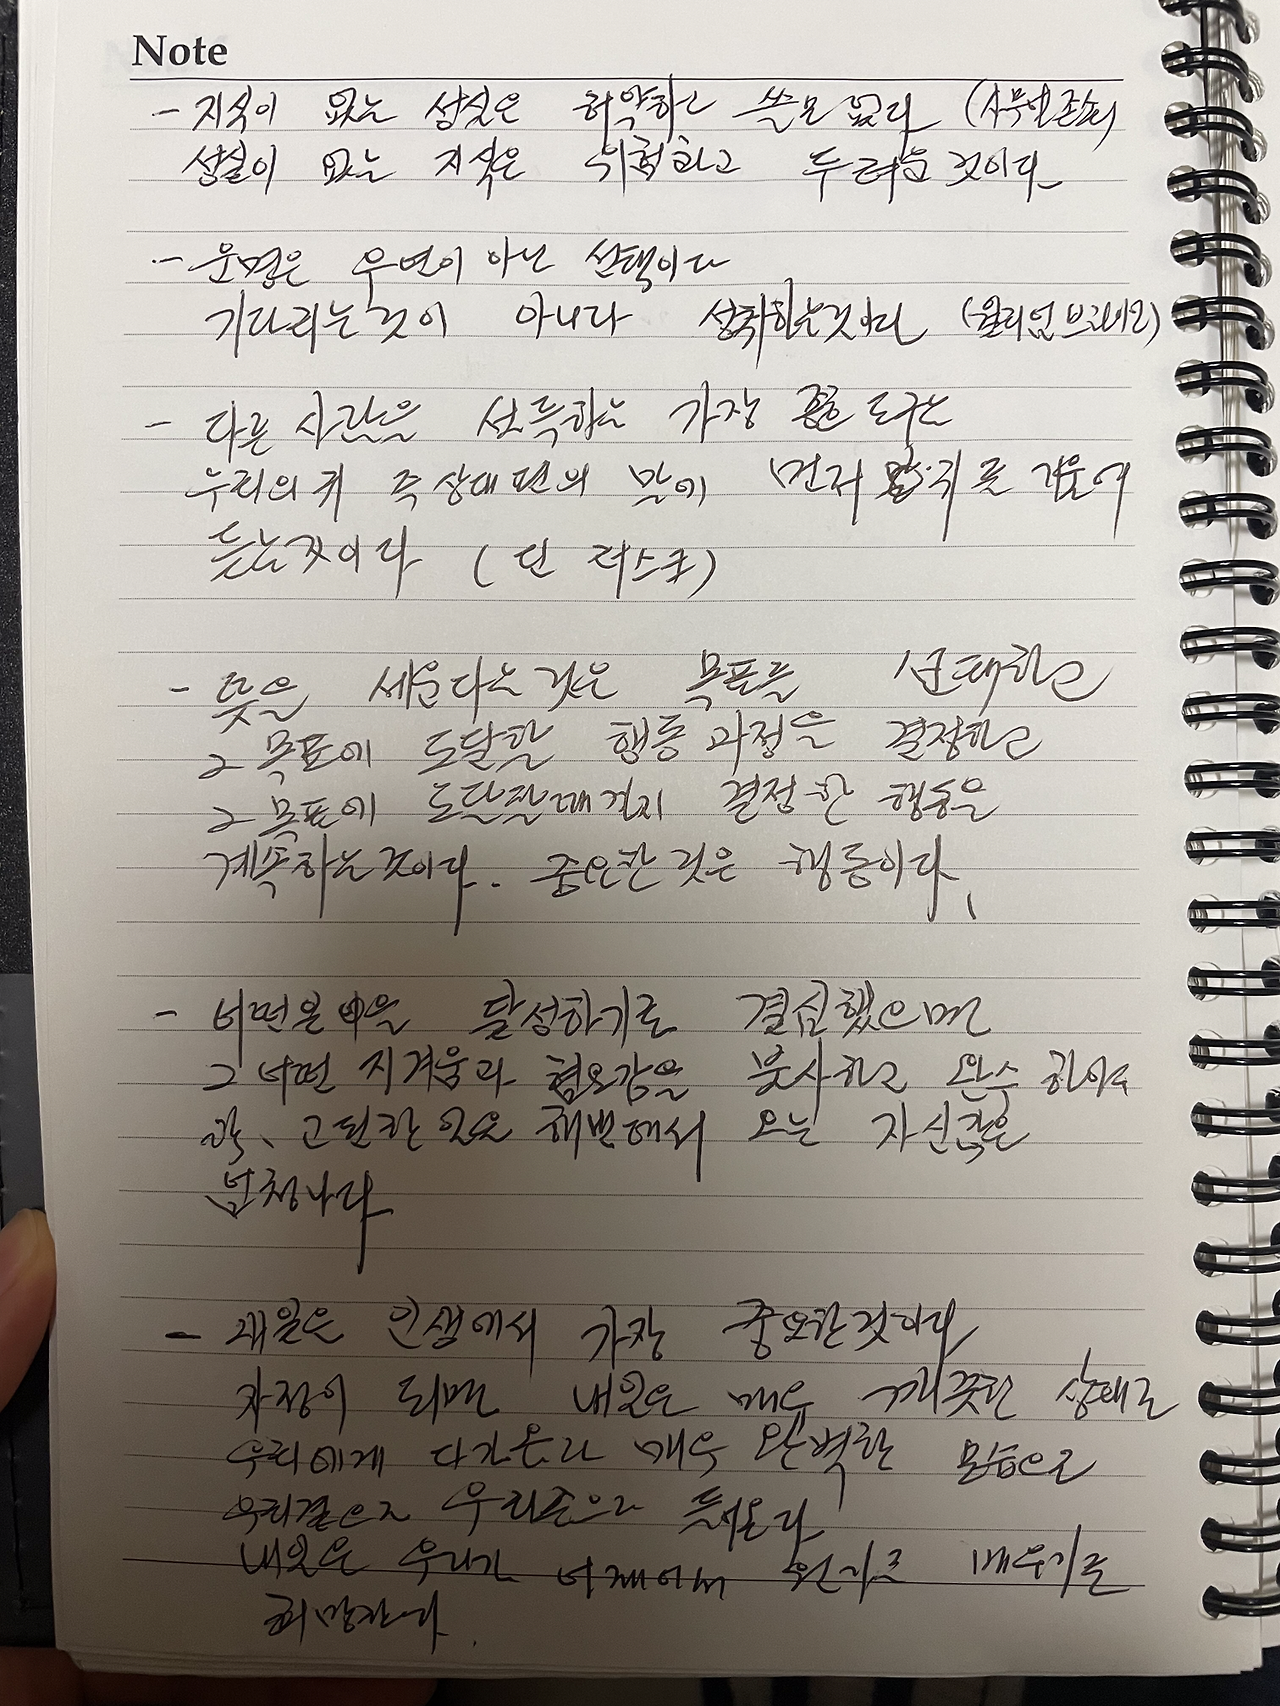 Note
- 지식이 없는 성실은 허약하고 쓸모없다 (사무엘존슨)
성실이 없는 지식은 위험하고 두려운것이다
- 운명은 우연이 아닌 선택이다
기다리는것이 아니다 성취하는것이다 (윌리엄브라이언)
- 다른 사람을 설득하는 가장 좋은 도구는
우리의 귀 즉 상대편의 말에 먼저 귀를 기울여
듣는것이다 (딘 러스크)
- 뜻을 세운다는것은 목표를 선택하고
그 목표에 도달할 행동과정을 결정하고
그 목표에 도달할때까지 결정한 행동을
계속하는것이다. 중요한것은 행동이다.
- 어떤일을 달성하기로 결심했으면
그 어떤 지겨움과 혐오감을 불사하고 완수하여라
고단한 일을 해낸데서 오는 자신감은
엄청나다
- 내일은 인생에서 가장 중요한것이다
자정이 되면 내일은 매우 깨끗한 상태로
우리에게 다가온다 매우 완벽한 모습으로
우리곁으로 우리손으로 들어온다
내일은 우리가 어제에서 뭔가를 배우기를
희망한다.